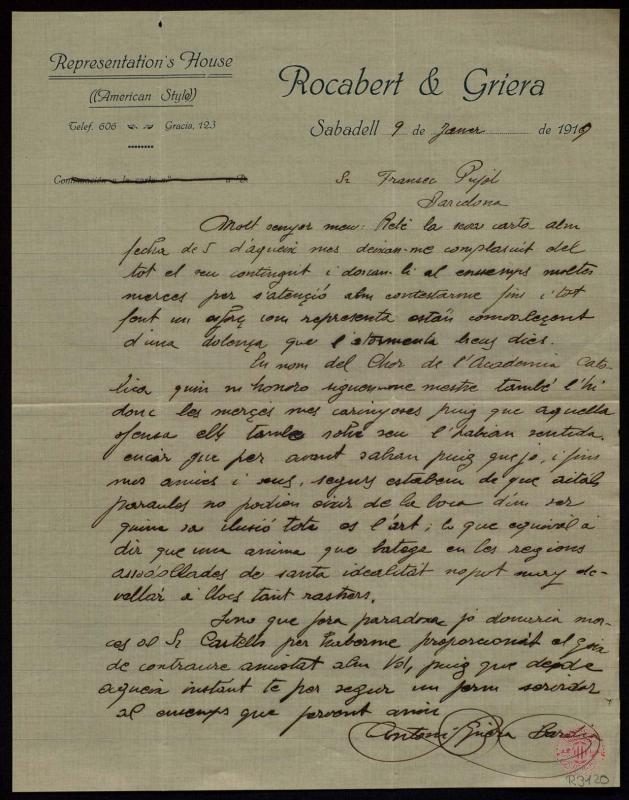 Representation's House
((American Style))
Telef. 606 Gracia, 123
Rocabert & Griera
Sabadell 9 de Janer de 1919
Sr Fransec Pujol
Barcelona
Molt senyor meu: Rebé la seva carta alm
fecha de 5 d'aqueix mes deixan-me complascut del
tot el seu contingut i donan-li al ensemps moltes
merces per s'atenció alm contestarme fins i tot
fent un esforç com representa están convalesçent
d'una dolença que l'atormenta breus dies.
En nom del Chor de l'Academia Cato-
lica quin m honoro siguen-ne mestre també l'hi
donc les merçes mes carinyoses puig que aquella
ofensa ells també sobre seu l'habian sentida,
encar que per avant sabian puig que jo, i fins
mos amics i seus, segurs estabem de que aitals
paraules no podien eixir de la boca d'un ser
quina sa ilusió tota es l'art; lo que equival a
dir que una anima que batega en les regions
assoóllades de santa idealitát no pot may de-
vallár a llocs tant rastrers.
Sino que fora paradoxa jo donaria mer-
ces al Sr Castells per haberme proporcionát el goig
de contraure amistat alm Vol, puig que desde
aqueix instant te per segur un ferm servidor
al ensemps que fervent amic
Antoni Griera
R3120